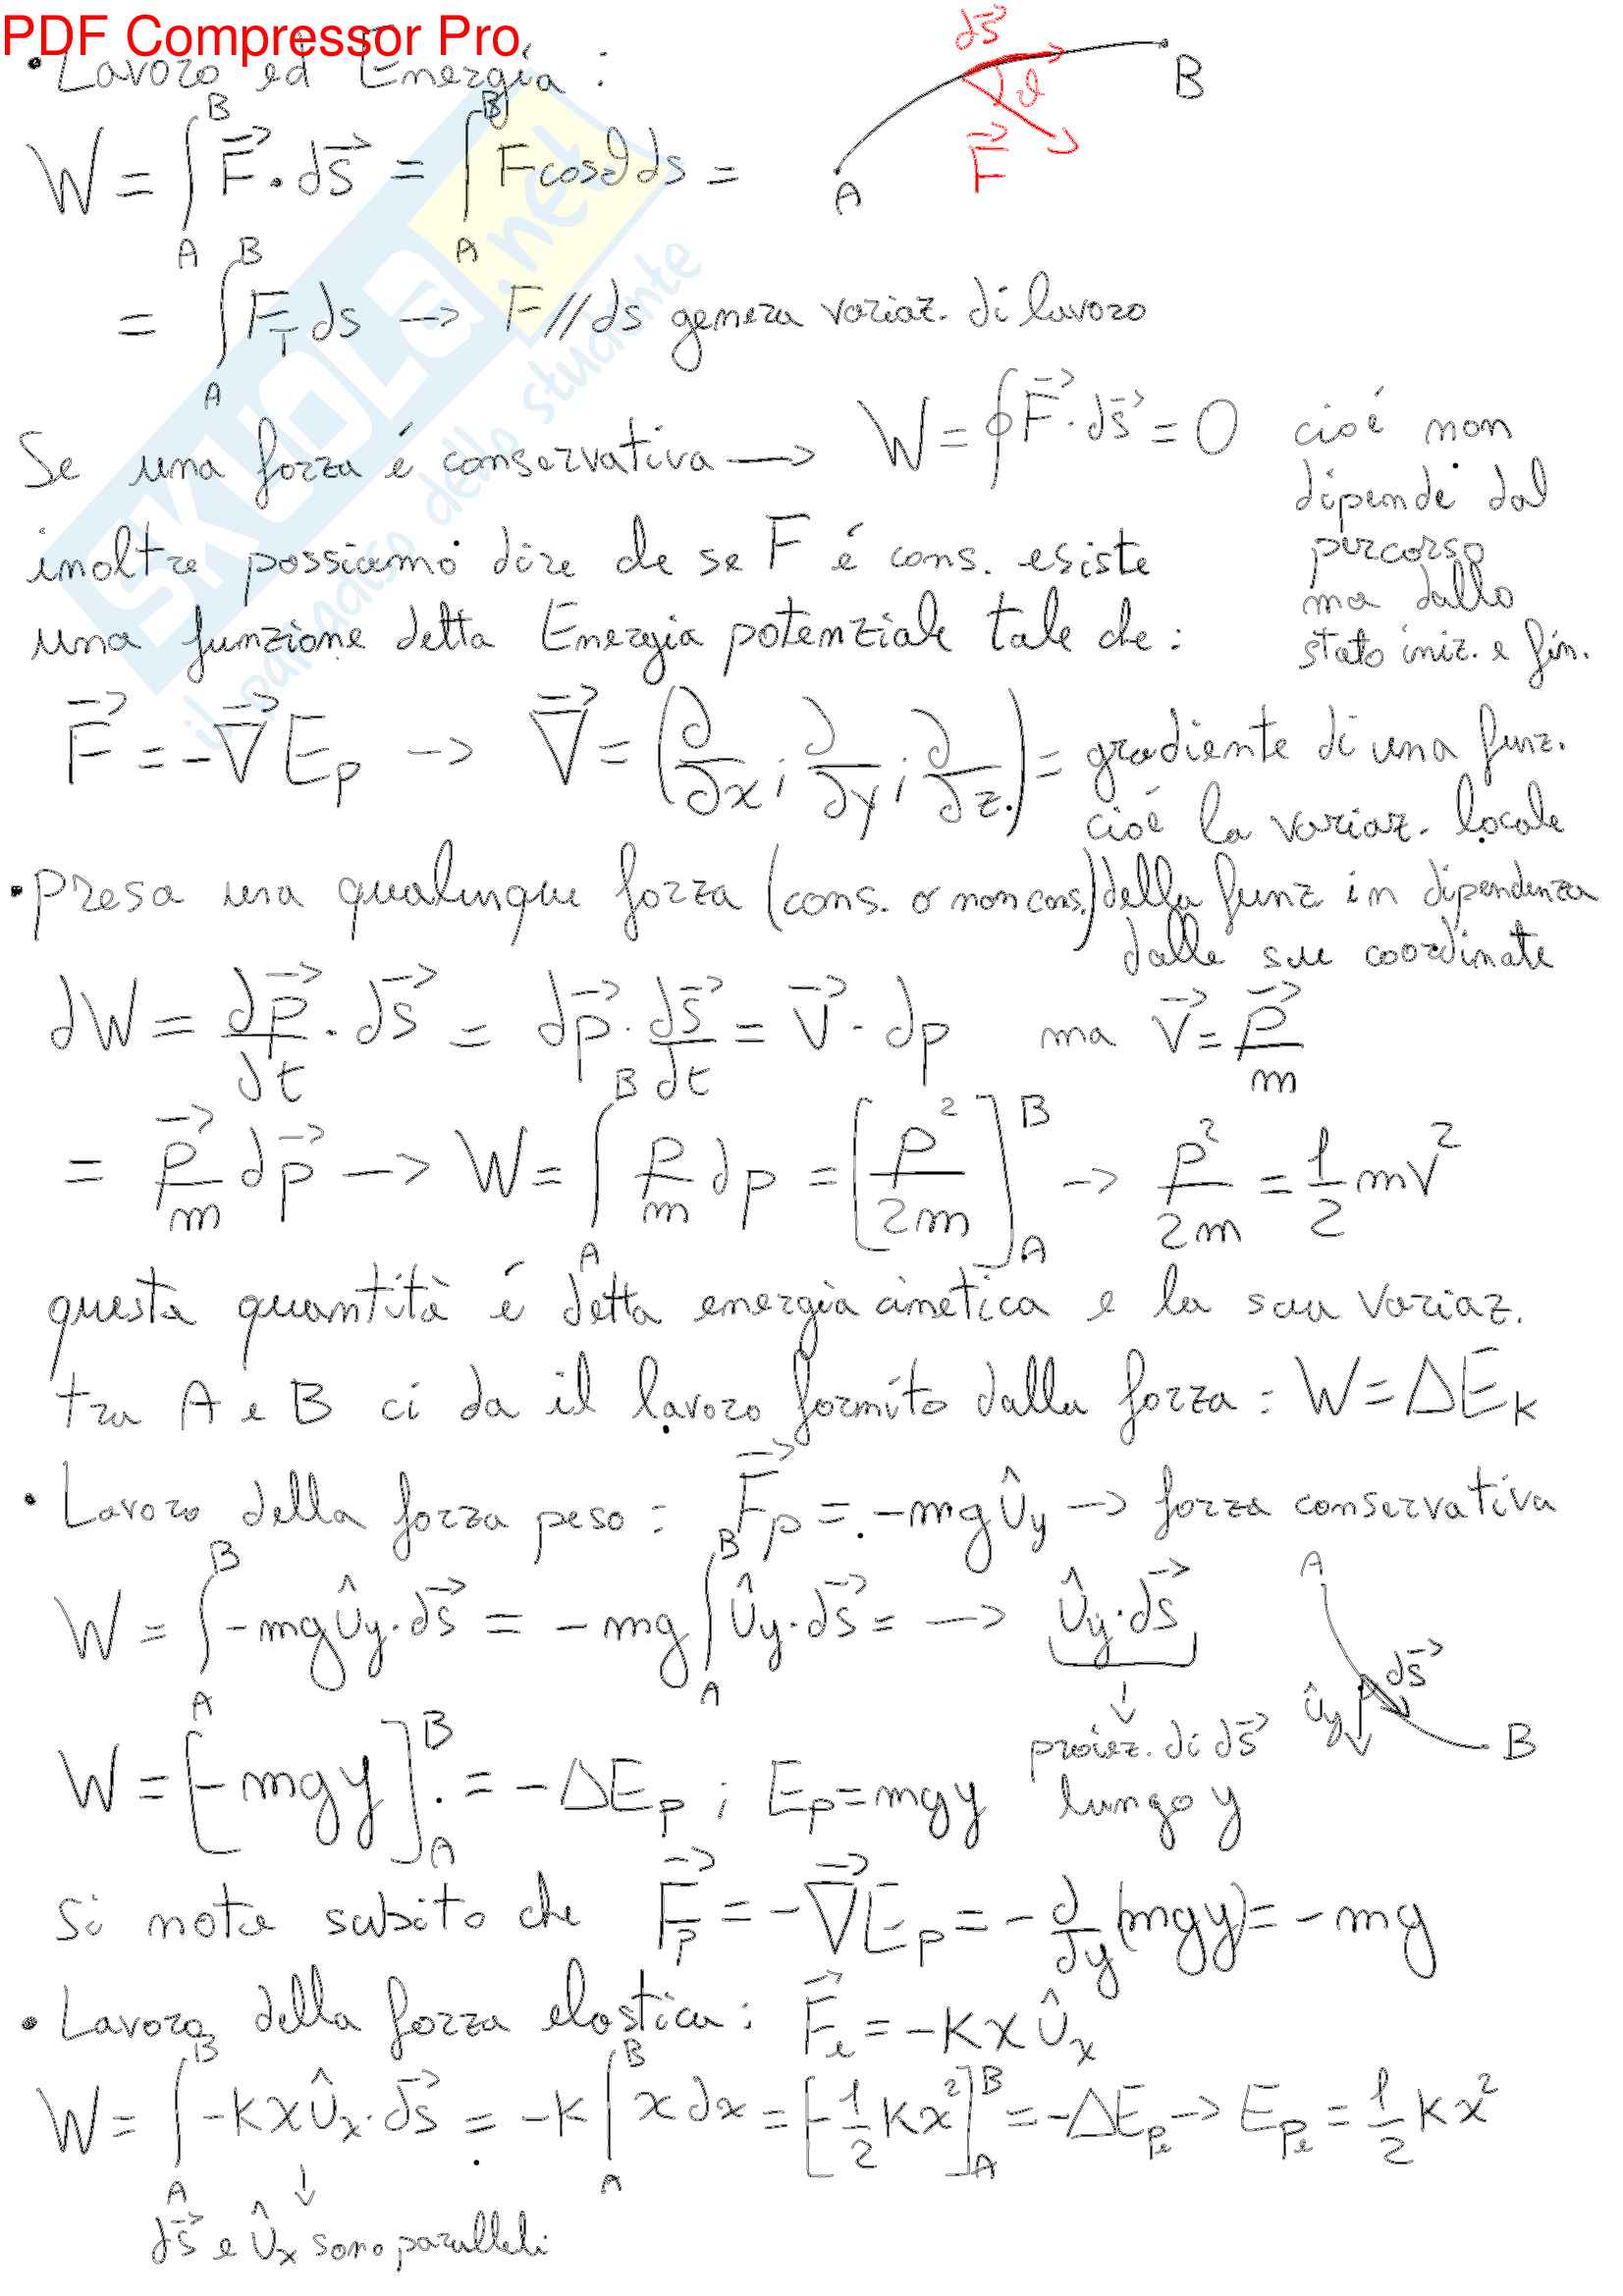 PDF Compressor Pro
• Lavoro ed Energia :
W = ∫_A^B F⃗ · ds⃗ = ∫_A^B F cosϑ ds =
ds⃗
ϑ
F⃗
A
B
= ∫_A^B F_T ds → F // ds genera variaz. di lavoro
Se una forza é conservativa → W = ∮ F⃗ · ds⃗ = 0 cioé non
dipende dal
percorso
ma dallo
stato iniz. e fin.
inoltre possiamo dire che se F é cons. esiste
una funzione detta Energia potenziale tale che :
F⃗ = -∇⃗ E_p → ∇⃗ = (∂/∂x ; ∂/∂y ; ∂/∂z) = gradiente di una funz.
cioé la variaz. locale
della funz in dipendenza
dalle sue coordinate
• Presa una qualunque forza (cons. o non cons.)
dW = dp⃗/dt · ds⃗ = dp⃗ · ds⃗/dt = v⃗ · dp ma v⃗ = p⃗/m
= p⃗/m dp⃗ → W = ∫_A^B p/m dp = [p²/2m]_A^B → p²/2m = 1/2 mv²
questa quantità é detta energia cinetica e la sua variaz.
tra A e B ci da il lavoro fornito dalla forza : W = ΔE_K
• Lavoro della forza peso : F⃗_p = -mg û_y → forza conservativa
W = ∫_A^B -mg û_y · ds⃗ = -mg ∫_A^B û_y · ds⃗ = → û_y · ds⃗
↓
proiez. di ds⃗
lungo y
A
ds⃗
û_y
B
W = [-mgy]_A^B = -ΔE_p ; E_p = mgy
Si nota subito che F⃗_p = -∇⃗E_p = -∂/∂y (mgy) = -mg
• Lavoro della forza elastica : F⃗_e = -Kx û_x
W = ∫_A^B -Kx û_x · ds⃗ = -K ∫_A^B x dx = [-1/2 Kx²]_A^B = -ΔE_pe → E_pe = 1/2 Kx²
↓
ds⃗ e û_x sono paralleli
SKUOLA.net
il paradiso dello studente